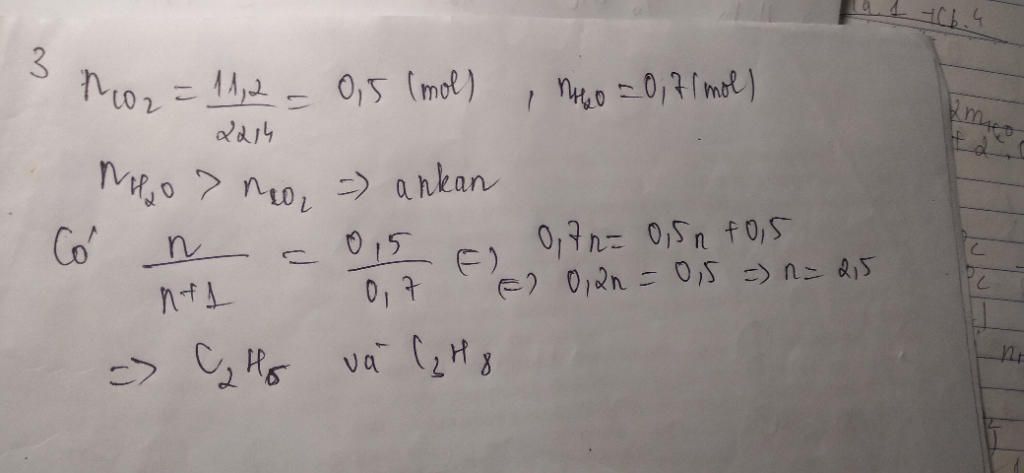 3
nCO2 = 11,2/22,4 = 0,5 (mol) , nH2O = 0,7 (mol)
nH2O > nCO2 => ankan
Có n/n+1 = 0,5/0,7 (=) 0,7n = 0,5n + 0,5
(=) 0,2n = 0,5 => n = 2,5
=> C2H6 và C3H8